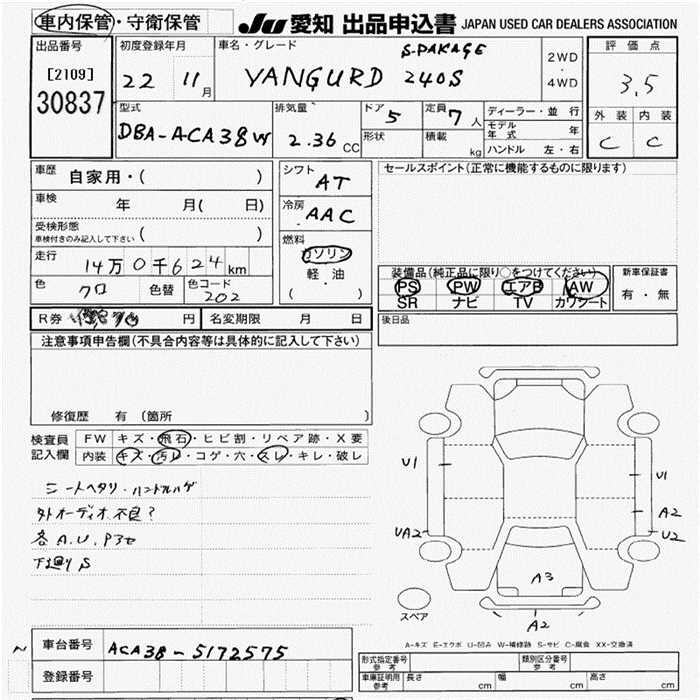 車内保管・守衛保管
JU 愛知 出品申込書 JAPAN USED CAR DEALERS ASSOCIATION
出品番号
[2109]
30837
初度登録年月
22 11月
車名・グレード
S-PAKAGE
YANGURD 240S
2WD
・
4WD
評価点
3.5
外装 内装
C C
型式
DBA-ACA38W
排気量
2.36 CC
ドア 5
形状
定員 7人
積載 kg
ディーラー・並行
モデル年式 年
ハンドル 左・右
車歴 自家用・( )
車検 年 月( 日)
受検形態
車検付きのみ記入して下さい ( )
走行
14万0千624km
色 クロ 色替 色コード 202
シフト AT
冷房 AAC
燃料
ガソリン
軽・油
( )
セールスポイント(正常に機能するものに限ります)
装備品(純正品に限り○をつけてください)
PS PW エアB AW
SR ナビ TV カワシート
新車保証書
有・無
R券 円 名変期限 月 日
後日品
注意事項申告欄(不具合内容等は具体的に記入して下さい)
修復歴 有 (箇所 )
検査員記入欄
FW キズ・飛石・ヒビ割・リペア跡・X要
内装 キズ・汚レ・コゲ・穴・スレ・キレ・破レ
シートヘタリ・ハンドルハゲ
外オーディオ不良?
各A.U.P3セ
下廻りS
U1
UA2
U1
A2
U2
A3
A2
スペア
A-キズ E-エクボ U-凹み W-補修跡 S-サビ C-腐食 XX-交換済
車台番号 ACA38-5172575
登録番号
形式指定番号 参考
類別区分番号 参考
車庫証明用 参考 長さ cm 幅 cm 高さ cm